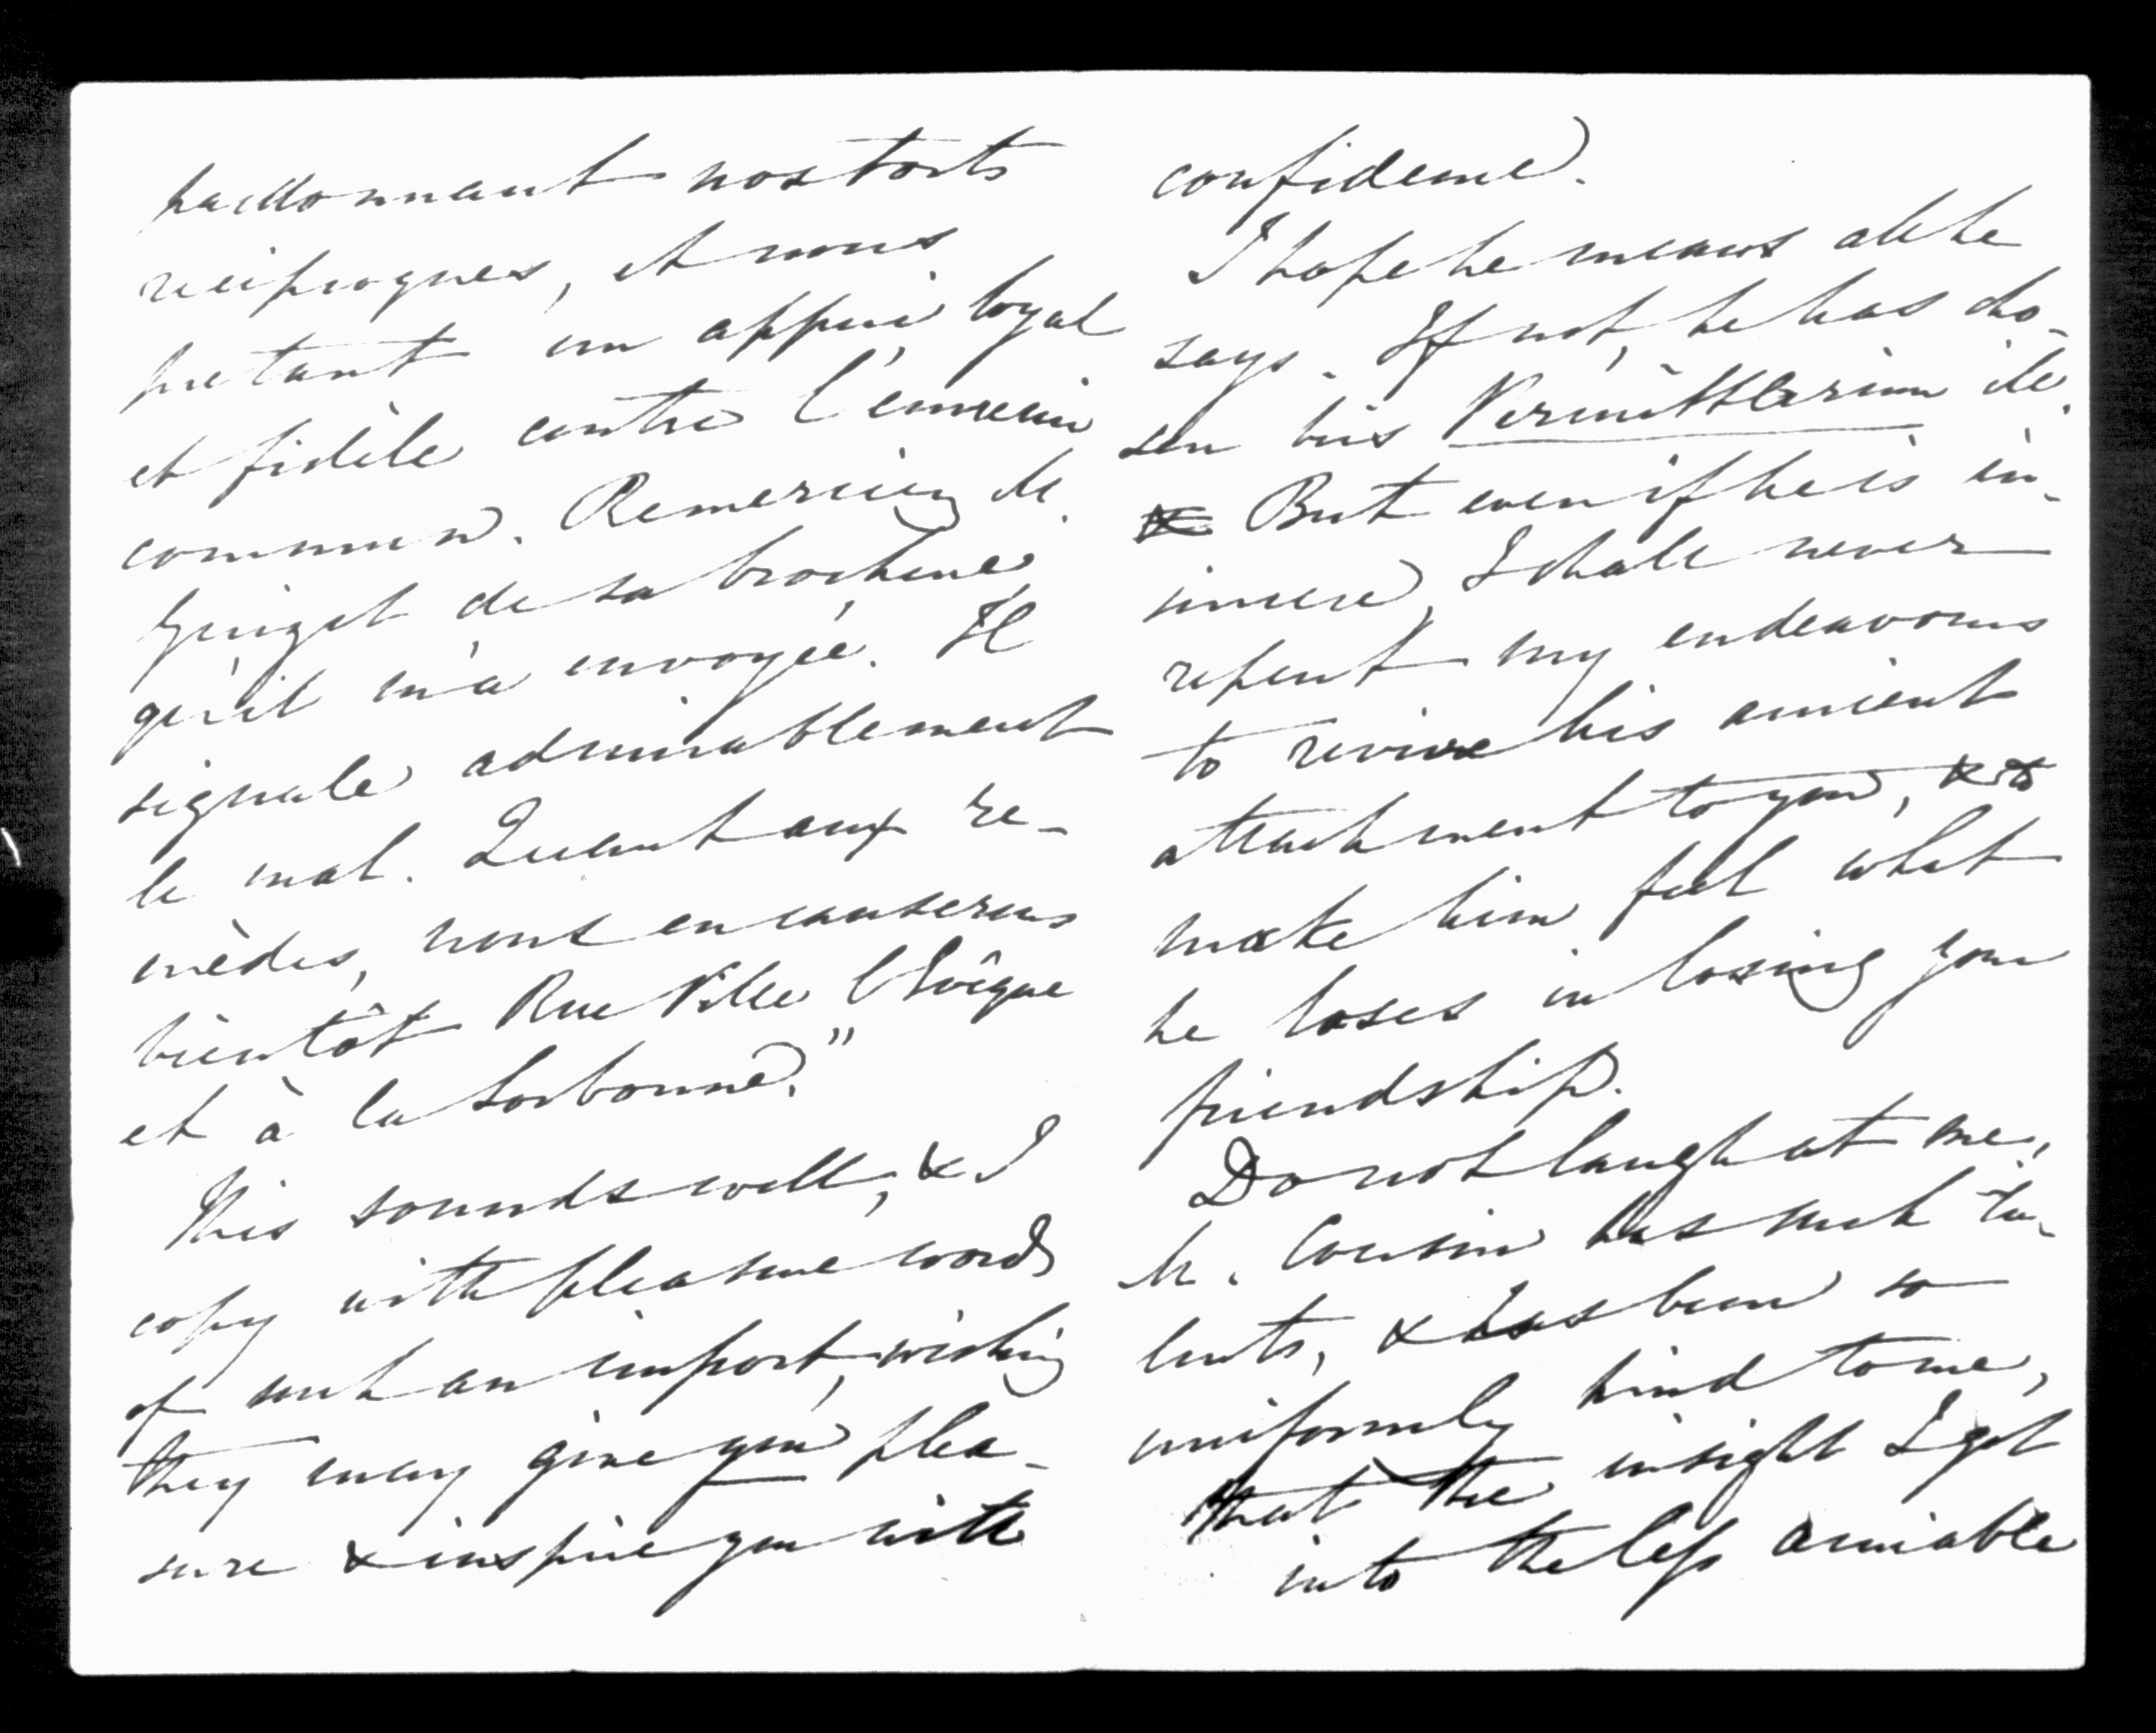 pardonnant nos torts
réciproques, et nous
pretant un appui loyal
et fidèle contre l'ennemi
commun. Remerciez M.
Guizot de sa brochure
qu'il m'a envoyée. Il
signale admirablement
le mal. Quant aux re-
mèdes, nous en causerons
bientôt Rue Ville l'Evêque
et à la Sorbonne."
This sounds well, & I
copy with pleasure words
of such an import, wishing
they may give you plea-
sure & inspire you with
confidence.
I hope he means all he
says. If not, he has cho-
sen his Vermittlerinn ill.
But even if he is in-
sincere, I shall never
repent my endeavours
to revive his ancient
attachment to you, & to
make him feel what
he loses in losing your
friendship.
Do not laugh at me,
M. Cousin has such ta-
lents, & has been so
uniformly kind to me,
that the insight I got
into the less amiable